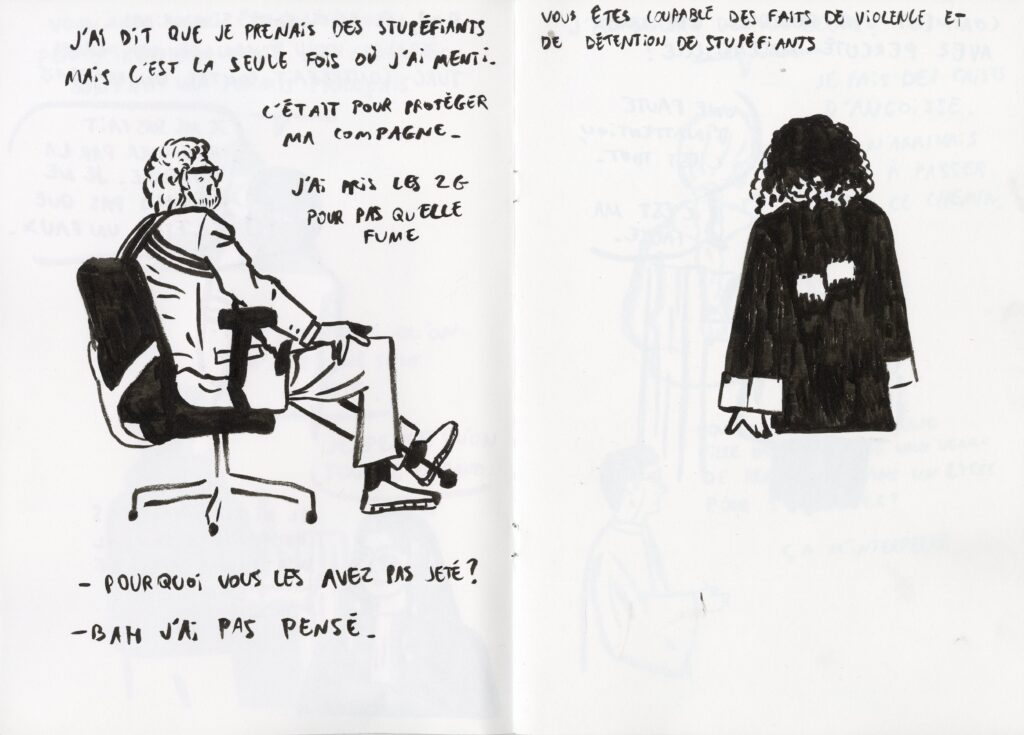 J'AI DIT QUE JE PRENAIS DES STUPÉFIANTS
MAIS C'EST LA SEULE FOIS OÙ J'AI MENTI.
C'ÉTAIT POUR PROTÉGER
MA COMPAGNE.
J'AI PRIS LES 2G
POUR PAS QU'ELLE
FUME
- POURQUOI VOUS LES AVEZ PAS JETÉ?
- BAH J'AI PAS PENSÉ.
VOUS ÊTES COUPABLE DES FAITS DE VIOLENCE ET
DE DÉTENTION DE STUPÉFIANTS